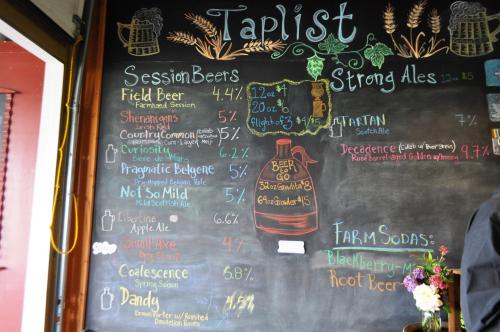 Taplist
Session Beers
Field Beer 4.4%
Farmhand Session
Shenanigans 5%
Irish Red
Country Common 5%
Curiosity 6.2%
Biere de Mars
Pragmatic Belgene 5%
Dry-Hopped Belgian Pale
Not So Mild 5%
Mild Scottish Ale
Libertine 6.6%
Apple Ale
Small Axe 4%
Dry Stout
Coalescence 6.8%
Spring Saison
Dandy 4.5%
Brown Porter w/Roasted
Dandelion Roots
12oz $4
20oz $6
Flight of 3 $45
Beer
To
Go
32oz Growlita $8
64oz Growler $15
Strong Ales 12oz $5
Tartan 7%
Scotch Ale
Decadence 9.7%
Farm Sodas:
Blackberry-M
Root Beer